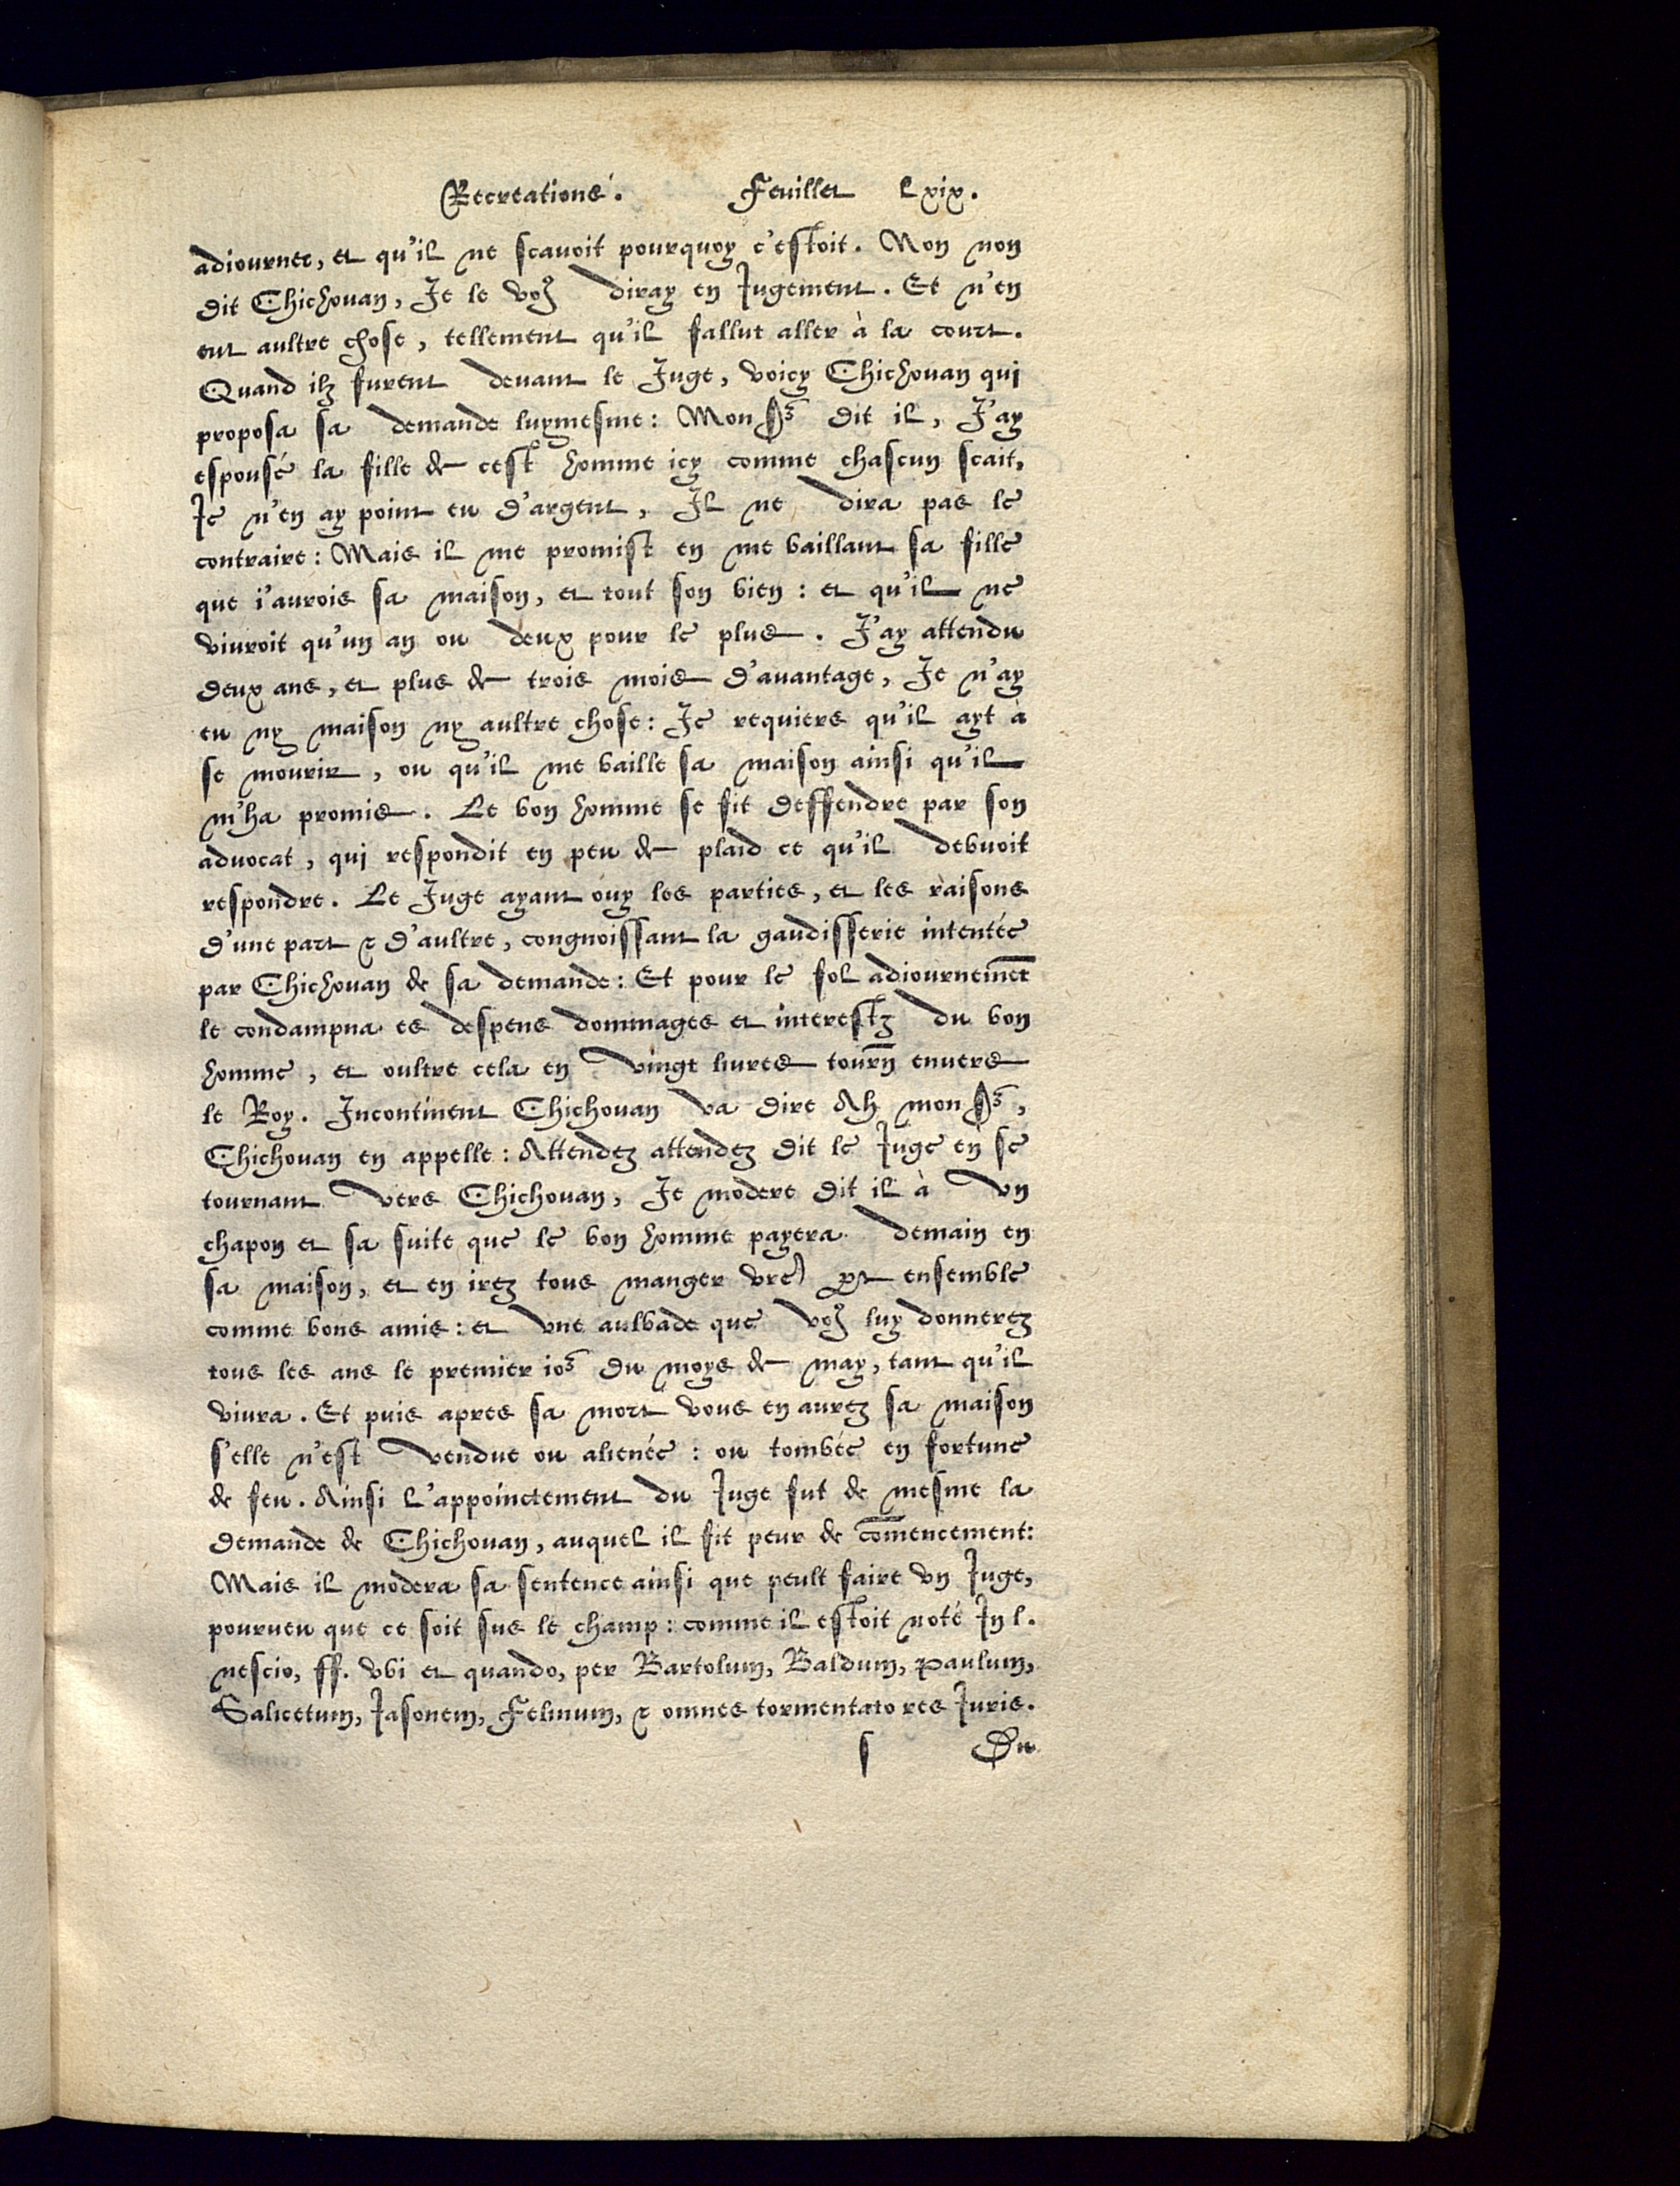 Recreations. Feuillet Lxix.
adiourner, et qu'il ne scauoit pourquoy c'estoit. Non non
dit Chichouan, Je le voꝰ diray en Jugement. Et n'en
eut aultre chose, tellement qu'il fallut aller à la court.
Quand ilz furent deuant le Juge, voicy Chichouan qui
proposa sa demande luymesme: Mon Sr dit il, J'ay
espousé la fille de cest homme icy comme chascun scait,
Je n'en ay point eu d'argent, Il ne dira pas le
contraire: Mais il me promist en me baillant sa fille
que i'aurois sa maison, et tout son bien: et qu'il ne
viuroit qu'un an ou deux pour le plus. J'ay attendu
deux ans, et plus de trois mois d'auantage, Je n'ay
eu ny maison ny aultre chose: Je requiers qu'il ayt à
se mourir, ou qu'il me baille sa maison ainsi qu'il
m'ha promis. Le bon homme se fit deffendre par son
aduocat, qui respondit en peu de plaid ce qu'il debuoit
respondre. Le Juge ayant ouy les parties, et les raisons
d'une part & d'aultre, congnoissant la gaudisserie intentée
par Chichouan de sa demande: Et pour le fol adiournemēt
le condampna es despens dommages et interestz du bon
homme, et oultre cela en vingt liures tourn̄ enuers
le Roy. Incontinent Chichouan va dire Ah mon Sr,
Chichouan en appelle: Attendez attendez dit le Juge en se
tournant vers Chichouan, Je modere dit il à vn
chapon et sa suite que le bon homme payera demain en
sa maison, et en irez tous manger vre part ensemble
comme bons amis: et vne aulbade que voꝰ luy donnerez
tous les ans le premier ior du moys de may, tant qu'il
viura. Et puis apres sa mort vous en aurez sa maison
s'elle n'est vendue ou alienée: ou tombée en fortune
de feu. Ainsi L'appoinctement du Juge fut de mesme la
demande de Chichouan, auquel il fit peur de cōmencement:
Mais il modera sa sentence ainsi que peult faire vn Juge,
pourueu que ce soit sus le champ: comme il estoit noté In l.
nescio, ff. vbi et quando, per Bartolum, Baldum, Paulum,
Salicetum, Jasonem, Felinum, & omnes tormentatores Juris.
s Du